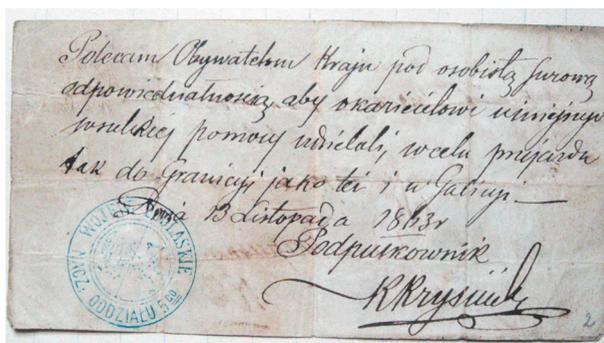 Polecam Obywatelom Kraju pod osobistą surową
odpowiedzialnością, aby okazicielowi niniejszego
wszelkiej pomocy udzielali, w celu przejazdu
tak do Granicy jako też i w Galicyi —
Dnia 13 Listopada 1863 r
Podpułkownik
K Krysiński
WOJEWÓDZ. PODLASKIE
NACZELN. ODDZIAŁU 5GO
2